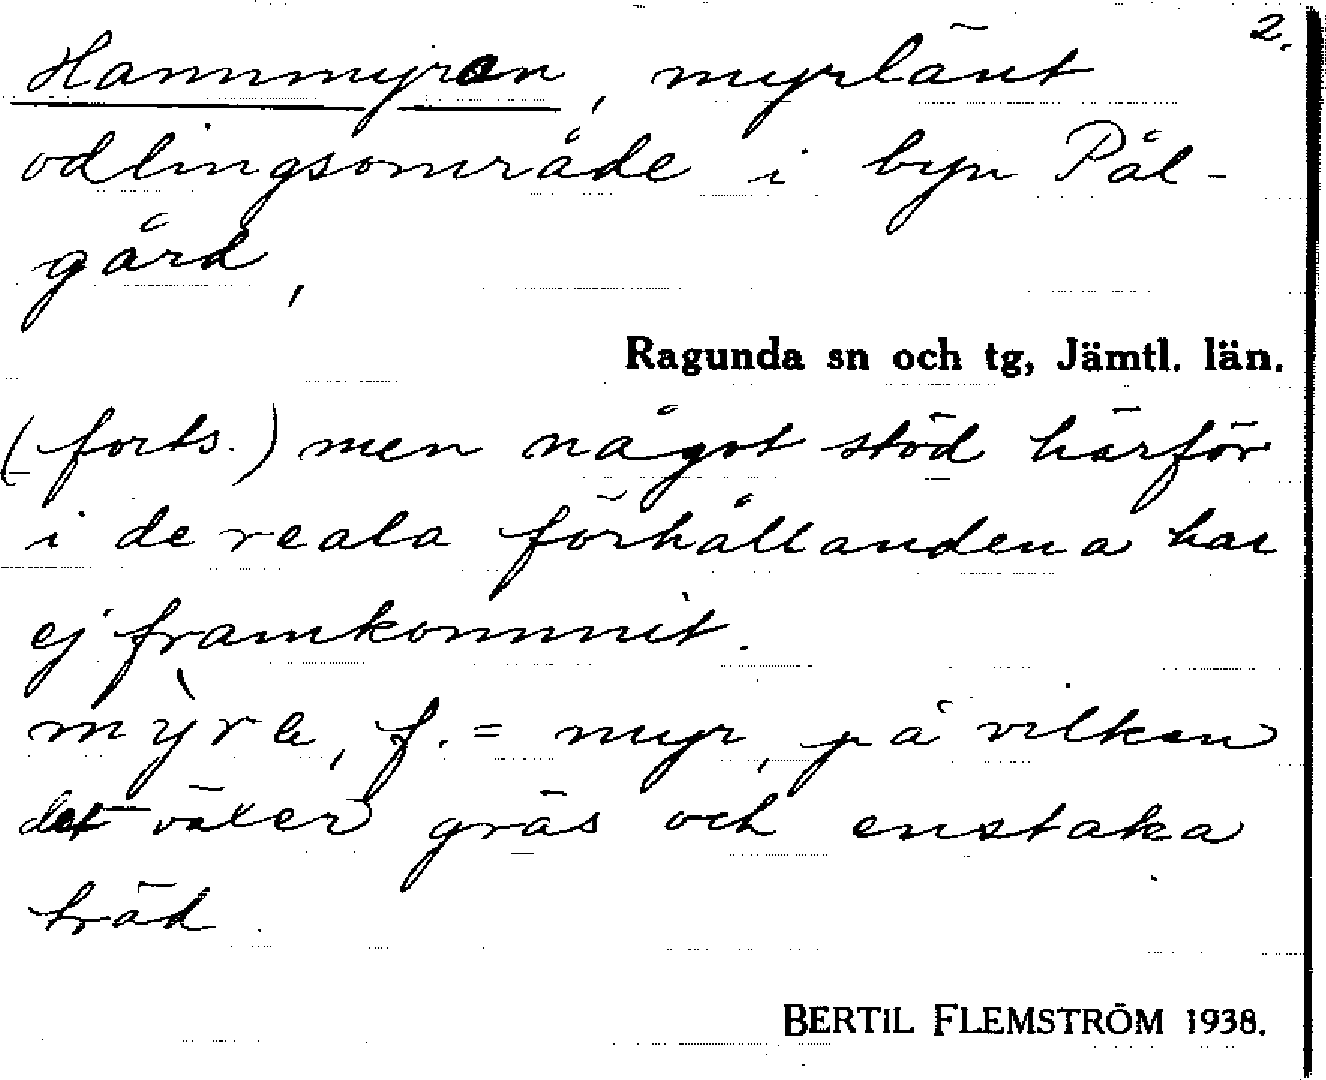 2.
Hammyren, myrlänt
odlingsområde i byn Pål-
gård,
Ragunda sn och tg, Jämtl. län.
(forts.) men något stöd härför
i de reala förhållandena har
ej framkommit.
mỳra, f. = myr, på vilken
det växer gräs och enstaka
träd.
BERTIL FLEMSTRÖM 1938.